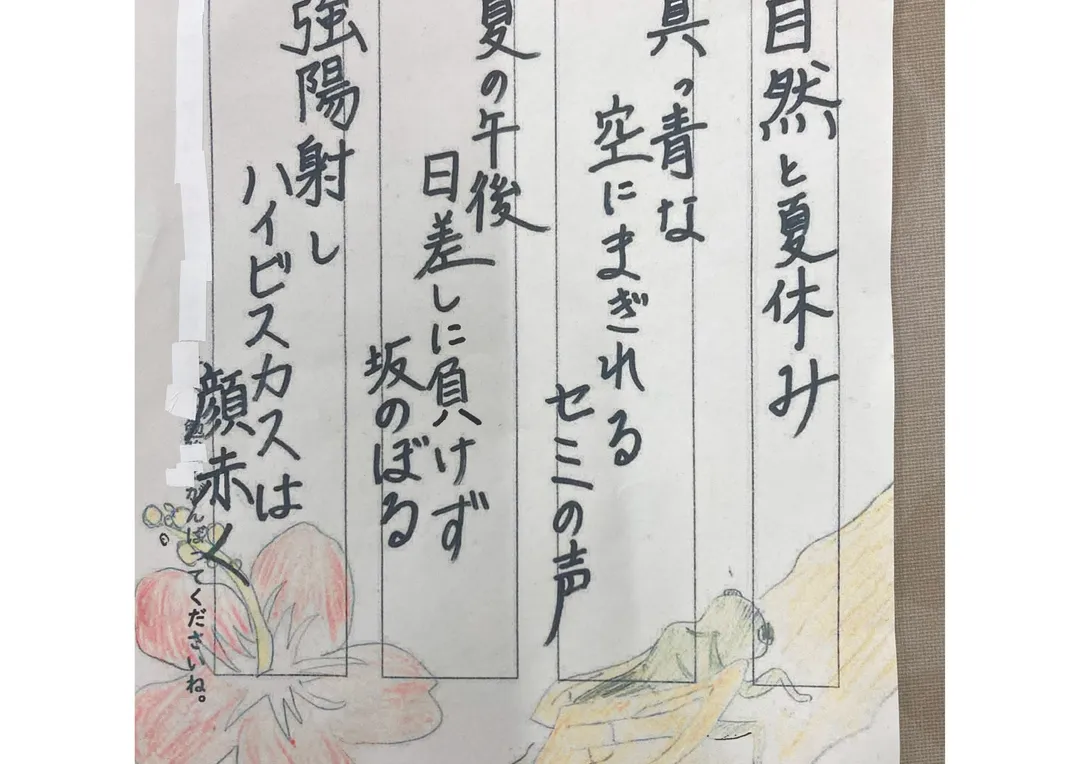 自然と夏休み
真っ青な
空にまぎれる
セミの声
夏の午後
日差しに負けず
坂のぼる
強陽射し
ハイビスカスは
顔赤く
がんばってくださいね。